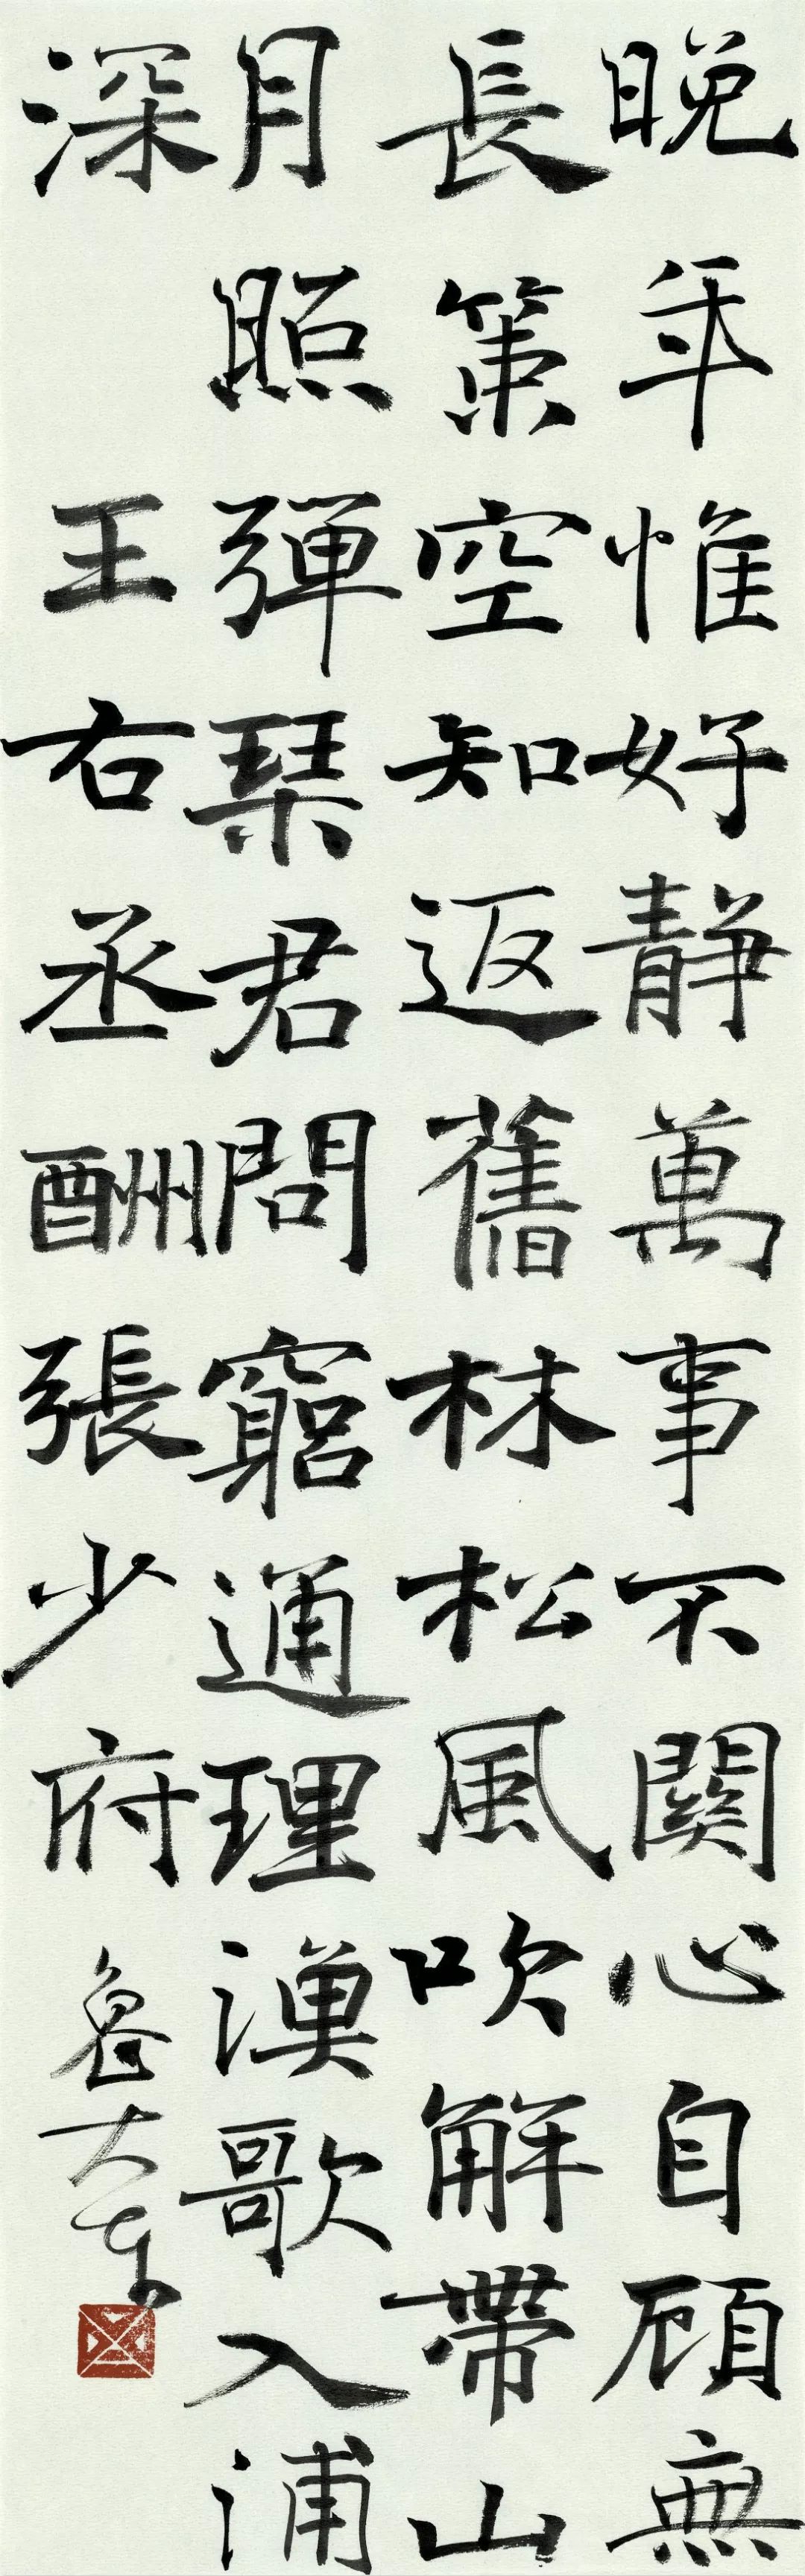 晚年惟好靜萬事不關心自顧無
長策空知返舊林松風吹解帶山
月照彈琴君問窮通理漁歌入浦
深
王右丞酬張少府
魯大東